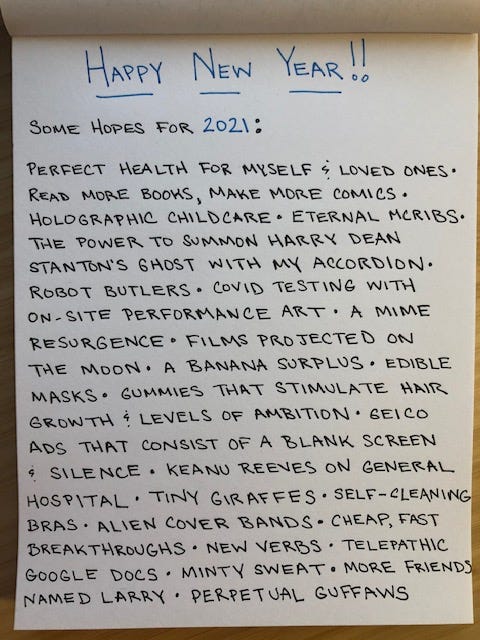 HAPPY NEW YEAR!!
SOME HOPES FOR 2021:
PERFECT HEALTH FOR MYSELF & LOVED ONES •
READ MORE BOOKS, MAKE MORE COMICS •
HOLOGRAPHIC CHILDCARE • ETERNAL MCRIBS •
THE POWER TO SUMMON HARRY DEAN
STANTON'S GHOST WITH MY ACCORDION •
ROBOT BUTLERS • COVID TESTING WITH
ON-SITE PERFORMANCE ART • A MIME
RESURGENCE • FILMS PROJECTED ON
THE MOON • A BANANA SURPLUS • EDIBLE
MASKS • GUMMIES THAT STIMULATE HAIR
GROWTH & LEVELS OF AMBITION • GEICO
ADS THAT CONSIST OF A BLANK SCREEN
& SILENCE • KEANU REEVES ON GENERAL
HOSPITAL • TINY GIRAFFES • SELF-CLEANING
BRAS • ALIEN COVER BANDS • CHEAP, FAST
BREAKTHROUGHS • NEW VERBS • TELEPATHIC
GOOGLE DOCS • MINTY SWEAT • MORE FRIENDS
NAMED LARRY • PERPETUAL GUFFAWS